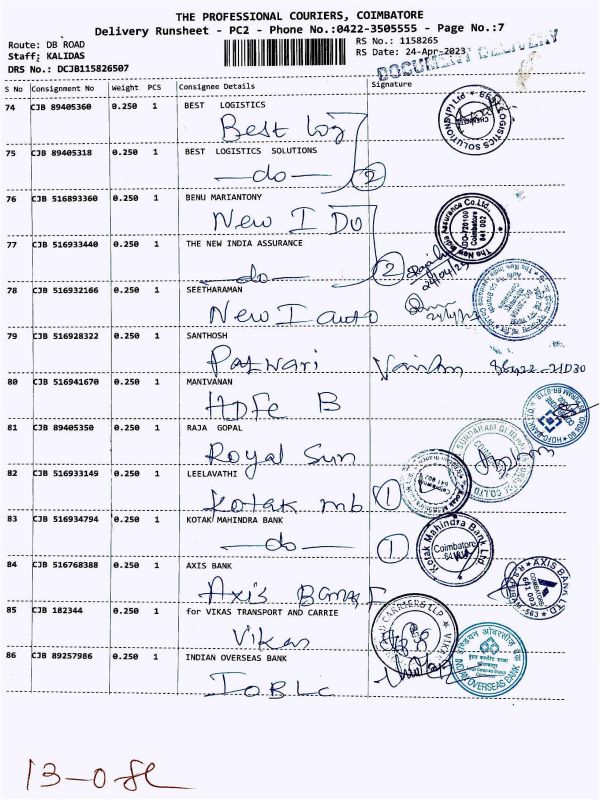 THE PROFESSIONAL COURIERS, COIMBATORE
Delivery Runsheet - PC2 - Phone No.:0422-3505555 - Page No.:7
Route: DB ROAD
RS No.: 1158265
Staff: KALIDAS
RS Date: 24-Apr-2023
DRS No.: DCJB115826507
DOCUMENT DELIVERY
S No Consignment No Weight PCS Consignee Details Signature
74 CJB 89405360 0.250 1 BEST LOGISTICS
Best Log
75 CJB 89405318 0.250 1 BEST LOGISTICS SOLUTIONS
do 2
76 CJB 516893360 0.250 1 BENU MARIANTONY
New I Do
77 CJB 516933440 0.250 1 THE NEW INDIA ASSURANCE
do 2
78 CJB 516932166 0.250 1 SEETHARAMAN
New I auto
79 CJB 516928322 0.250 1 SANTHOSH
80 CJB 516941670 0.250 1 MANIVANAN
HDFC B
81 CJB 89405350 0.250 1 RAJA GOPAL
Royal Sun
82 CJB 516933149 0.250 1 LEELAVATHI
Kotak mb 1
83 CJB 516934794 0.250 1 KOTAK MAHINDRA BANK
do 1
Kotak Mahindra Bank Ltd
Coimbatore
84 CJB 516768388 0.250 1 AXIS BANK
Axis Bank
AXIS BANK LTD
85 CJB 182344 0.250 1 for VIKAS TRANSPORT AND CARRIE
Vikas
86 CJB 89257986 0.250 1 INDIAN OVERSEAS BANK
INDIAN OVERSEAS BANK